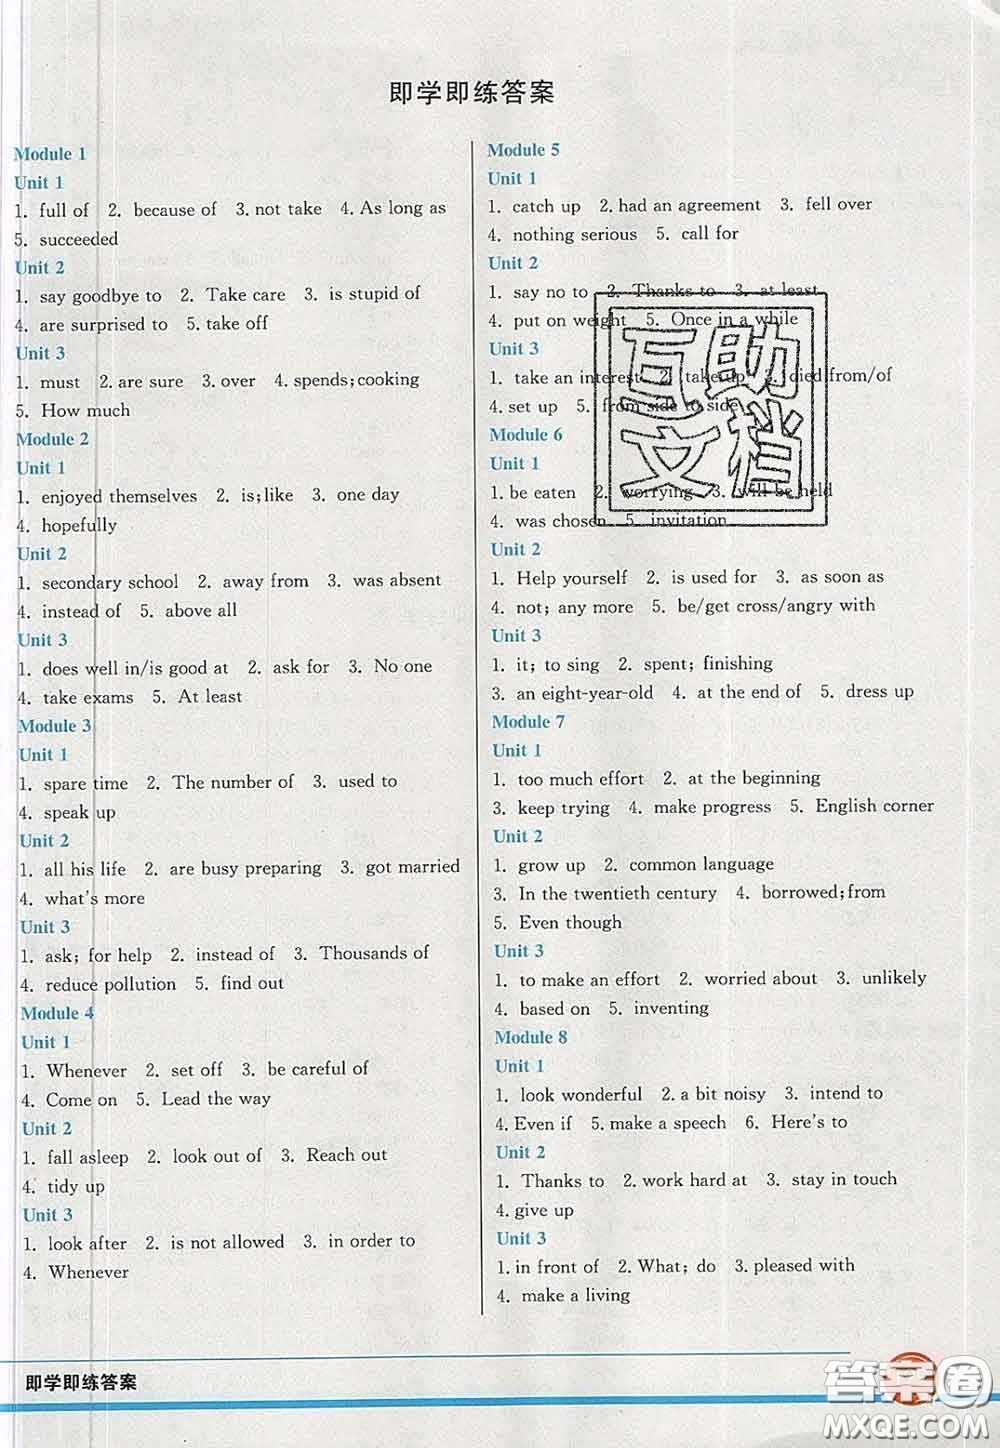 即学即练答案
Module 1
Unit 1
1. full of 2. because of 3. not take 4. As long as
5. succeeded
Unit 2
1. say goodbye to 2. Take care 3. is stupid of
4. are surprised to 5. take off
Unit 3
1. must 2. are sure 3. over 4. spends;cooking
5. How much
Module 2
Unit 1
1. enjoyed themselves 2. is;like 3. one day
4. hopefully
Unit 2
1. secondary school 2. away from 3. was absent
4. instead of 5. above all
Unit 3
1. does well in/is good at 2. ask for 3. No one
4. take exams 5. At least
Module 3
Unit 1
1. spare time 2. The number of 3. used to
4. speak up
Unit 2
1. all his life 2. are busy preparing 3. got married
4. what's more
Unit 3
1. ask; for help 2. instead of 3. Thousands of
4. reduce pollution 5. find out
Module 4
Unit 1
1. Whenever 2. set off 3. be careful of
4. Come on 5. Lead the way
Unit 2
1. fall asleep 2. look out of 3. Reach out
4. tidy up
Unit 3
1. look after 2. is not allowed 3. in order to
4. Whenever
Module 5
Unit 1
1. catch up 2. had an agreement 3. fell over
4. nothing serious 5. call for
Unit 2
1. say no to 2. Thanks to 3. at least
4. put on weight 5. Once in a while
Unit 3
1. take an interest 2. take up 3. died from/of
4. set up 5. from side to side
Module 6
Unit 1
1. be eaten 2. worrying 3. will be held
4. was chosen 5. invitation
Unit 2
1. Help yourself 2. is used for 3. as soon as
4. not; any more 5. be/get cross/angry with
Unit 3
1. it; to sing 2. spent; finishing
3. an eight-year-old 4. at the end of 5. dress up
Module 7
Unit 1
1. too much effort 2. at the beginning
3. keep trying 4. make progress 5. English corner
Unit 2
1. grow up 2. common language
3. In the twentieth century 4. borrowed;from
5. Even though
Unit 3
1. to make an effort 2. worried about 3. unlikely
4. based on 5. inventing
Module 8
Unit 1
1. look wonderful 2. a bit noisy 3. intend to
4. Even if 5. make a speech 6. Here's to
Unit 2
1. Thanks to 2. work hard at 3. stay in touch
4. give up
Unit 3
1. in front of 2. What; do 3. pleased with
4. make a living
互助
文档
即学即练答案
答案圈
MXQE.COM